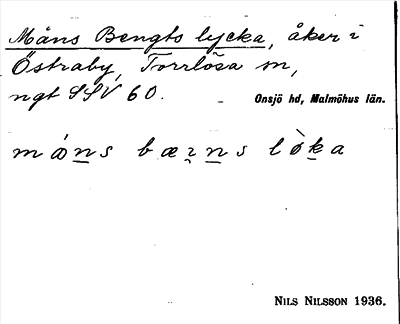 Måns Bengts lycka, åker i
Östraby, Torrlösa sn,
ngt SSV 60. Onsjö hd, Malmöhus län.
NILS NILSSON 1936.